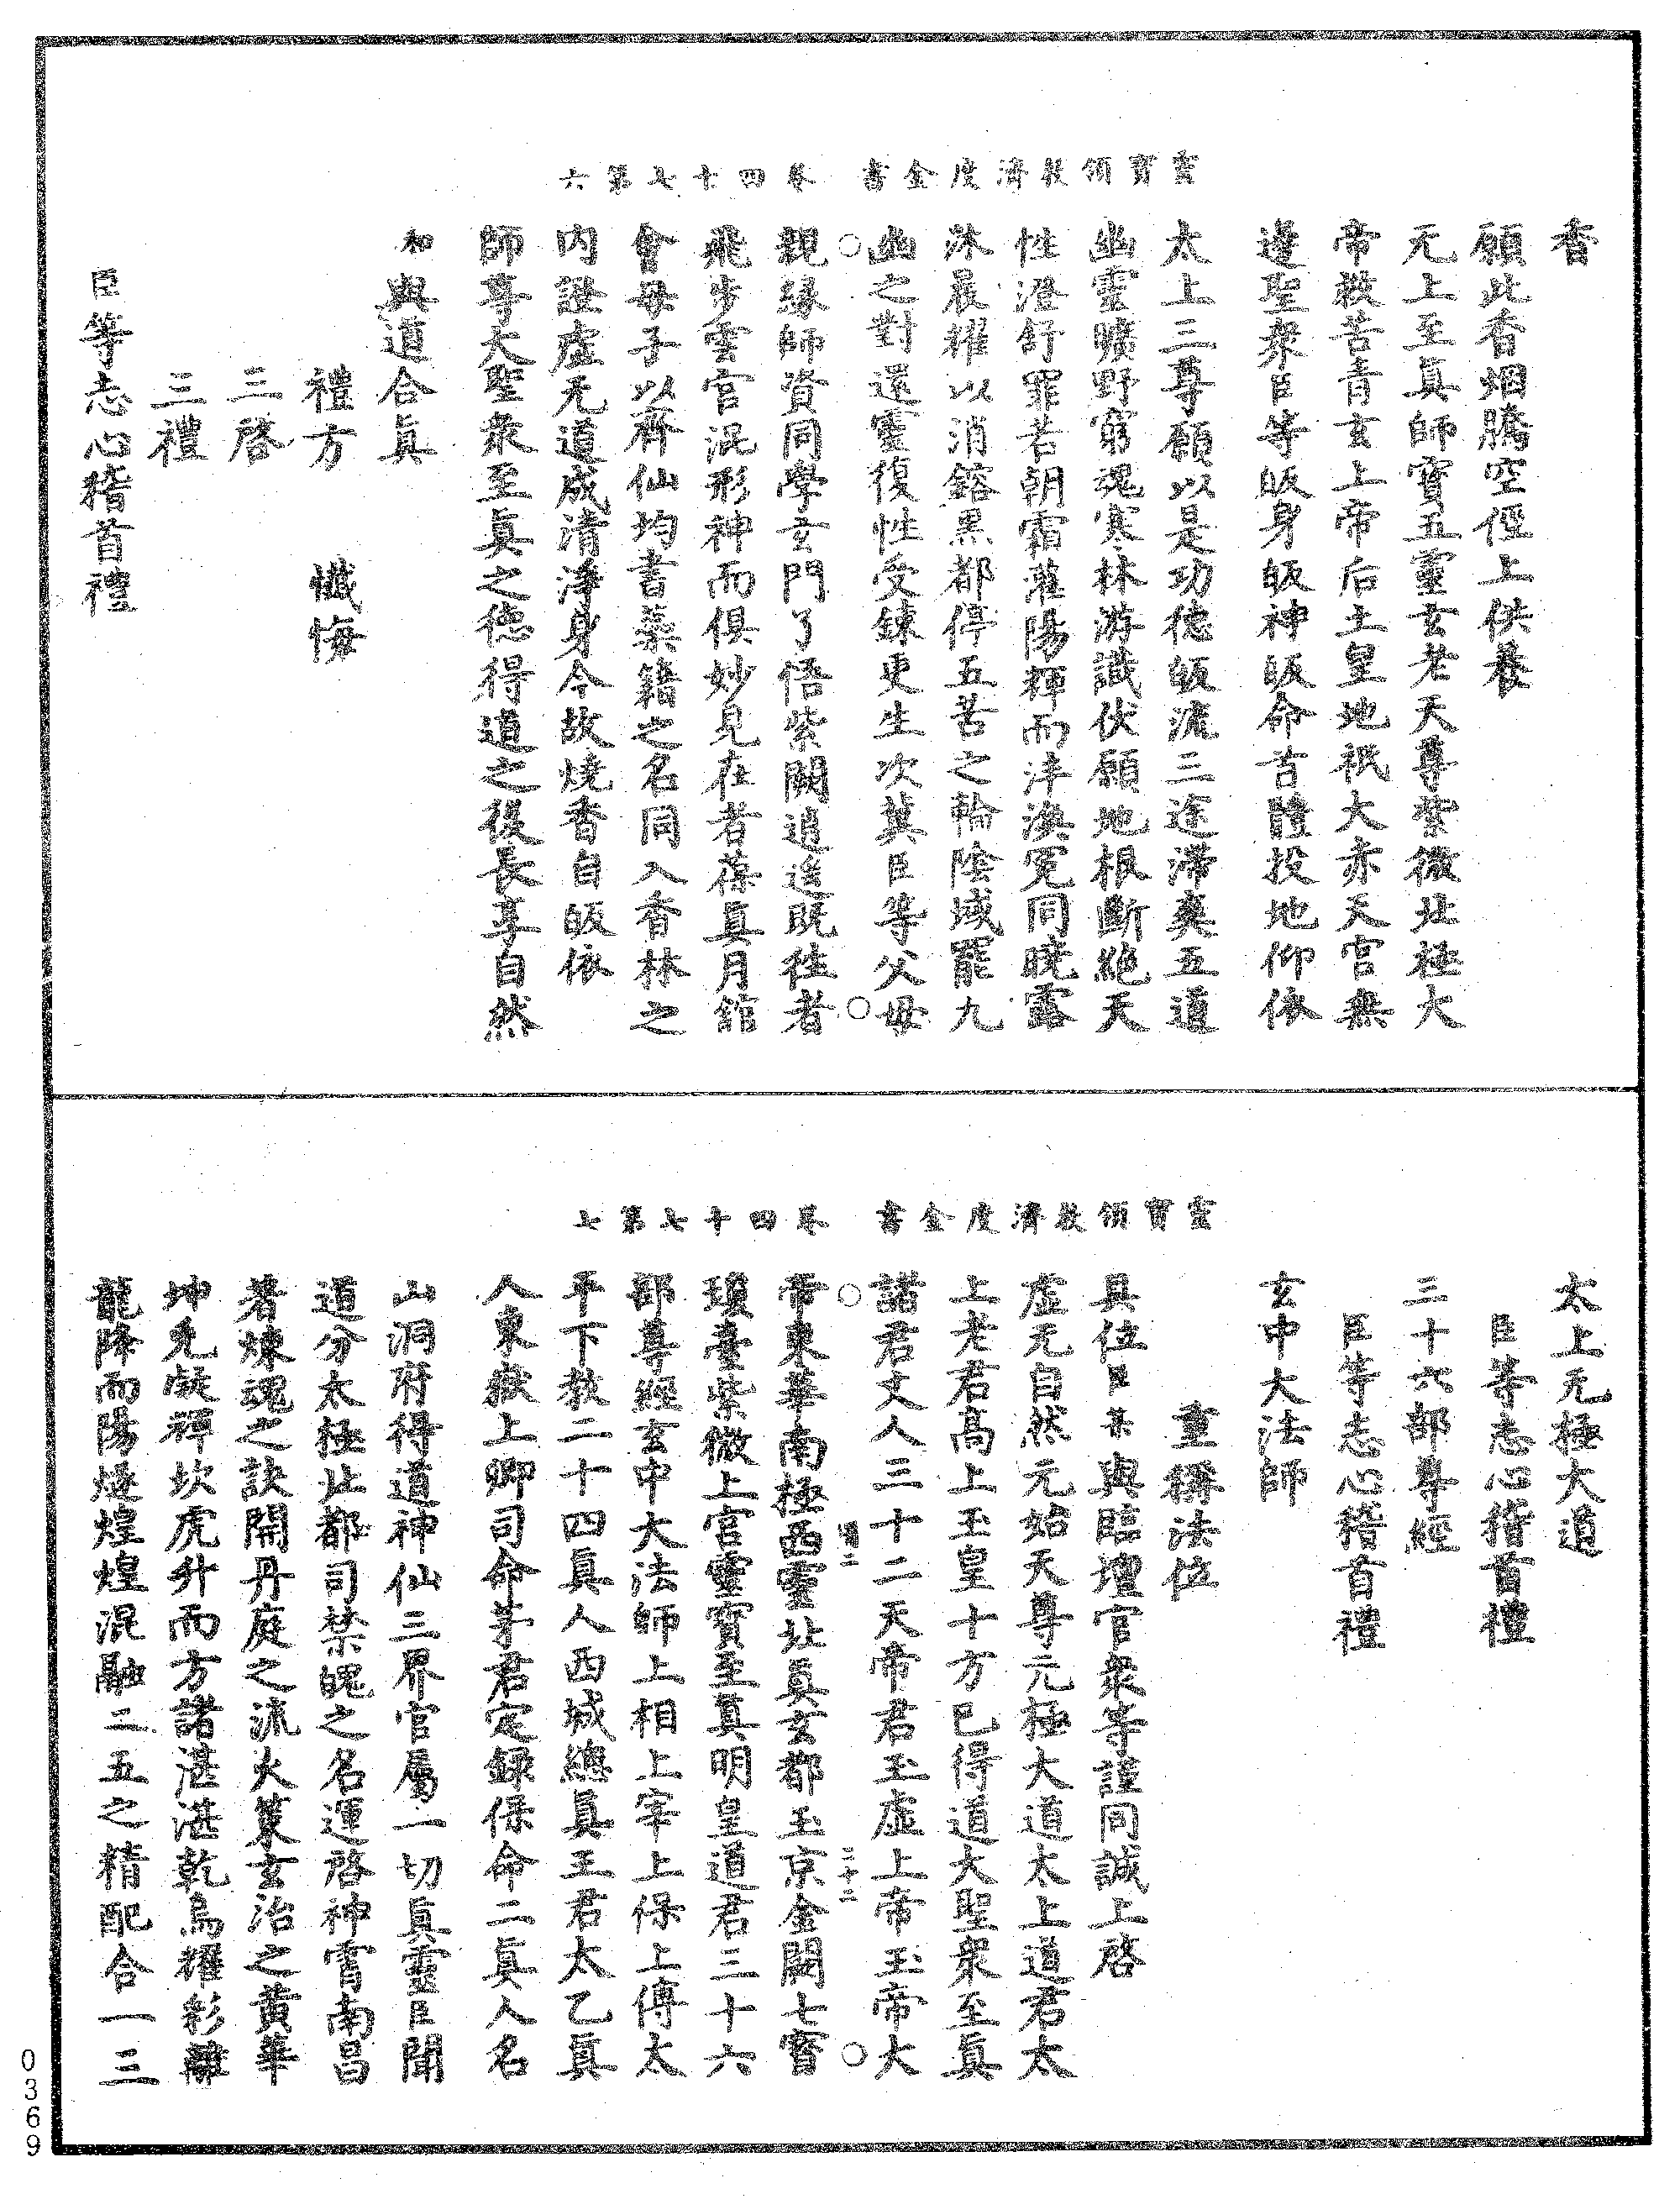 靈寶領教濟度金書　卷四十七第六
香
願此香烟騰空徑上供養
元上至真師寶五靈玄老天尊紫微北極大
帝救苦青玄上帝后土皇地祇大赤天官無
邊聖衆臣等皈身皈神皈命首體投地仰依
太上三尊願以是功德皈流三途滯爽五道
幽靈曠野窮魂寒林游識伏願地根斷絶天
性澄舒罪若朝霜灌陽輝而泮渙冤同曉露
沐晨耀以消鎔黑都停五苦之輪陰域罷九
幽之對還靈復性受鍊更生次冀臣等父母
親緣師資同學玄門了悟紫闕逍遥既往者
飛步雲官混形神而俱妙見在者葆真月館
會母子以齊仙均書蘂籍之名同入香林之
内證虚无道成清淨身今故燒香自皈依
師尊大聖衆至真之德得道之後長享自然
和與道合真
禮方　懺悔
三啓
三禮
臣等志心稽首禮
靈寶領教濟度金書　卷四十七第七
太上无極大道
臣等志心稽首禮
三十六部尊經
臣等志心稽首禮
玄中大法師
重稱法位
具位臣某與臨壇官衆等謹同誠上啓
虚无自然元始天尊元極大道太上道君太
上老君高上玉皇十方已得道大聖衆至真
諸君丈人三十二天帝君玉虚上帝玉帝大
三十二
帝東華南極西靈北真玄都玉京金闕七寶
瓊臺紫微上宮靈寶至真明皇道君三十六
部尊經玄中大法師上相上宰上保上傅太
平下教二十四真人西城總真王君太乙真
人東嶽上卿司命茅君定録保命二真人名
山洞府得道神仙三界官屬一切真靈臣聞
道分太極北都司禁魄之名運啓神霄南昌
著煉魂之訣開丹庭之流火策玄治之黄華
坤兎凝禪坎虎升而方諸湛湛乾烏耀彩離
龍降而陽燧煌煌混融二五之精配合一三
0369